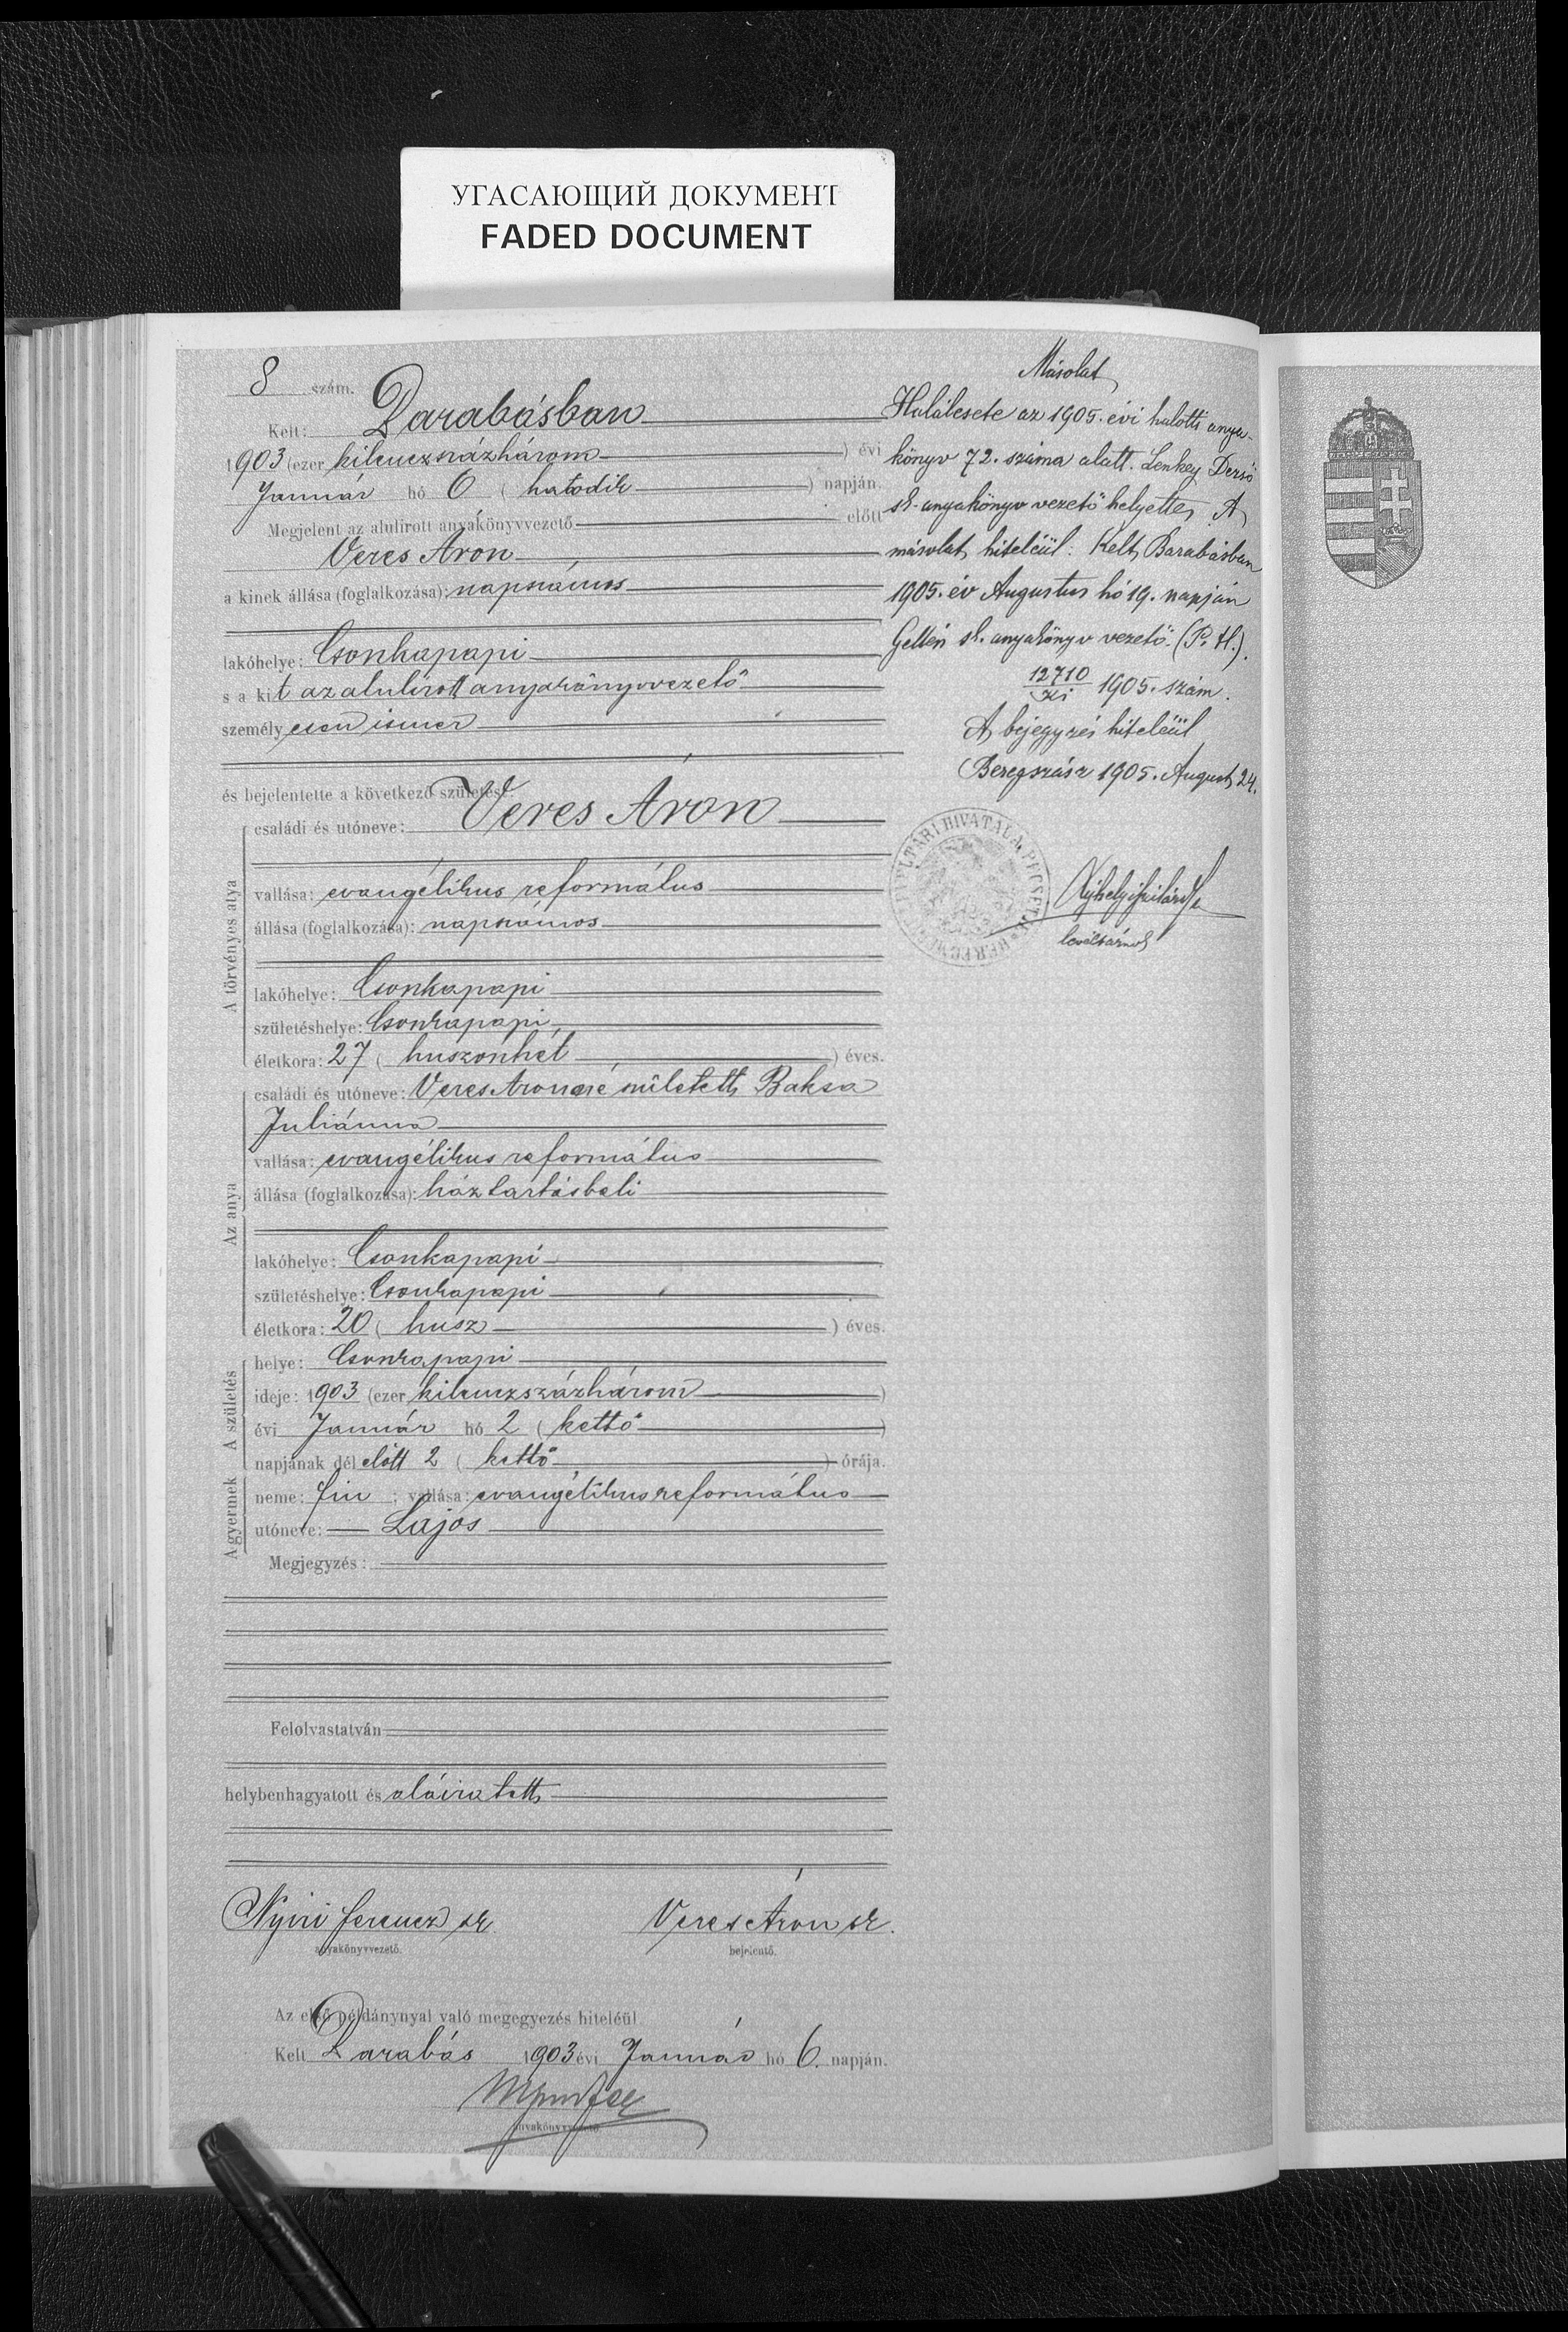 УГАСАЮЩИЙ ДОКУМЕНТ
FADED DOCUMENT
8 szám.
Kelt: Barabásban
1903 (ezer kilenczszázhárom) évi
Január hó 6 (hatodik) napján.
Megjelent az alulirott anyakönyvvezető előtt
Veres Áron
a kinek állása (foglalkozása): napszámos
lakóhelye: Csonkapapi
s a kit az alulírott anyakönyvvezető
személyesen ismer
és bejelentette a következő születést:
A törvényes atya
családi és utóneve: Veres Áron
vallása: evangélikus református
állása (foglalkozása): napszámos
lakóhelye: Csonkapapi
születéshelye: Csonkapapi
életkora: 27 (huszonhét) éves.
Az anya
családi és utóneve: Veres Áronné született Baksa
Juliánna
vallása: evangélikus református
állása (foglalkozása): háztartásbeli
lakóhelye: Csonkapapi
születéshelye: Csonkapapi
életkora: 20 (húsz) éves.
A születés
helye: Csonkapapi
ideje: 1903 (ezer kilenczszázhárom)
évi Január hó 2 (kettő)
napjának délelőtt 2 (kettő) órája.
A gyermek
neme: fiu; vallása: evangélikus református
utóneve: Lajos
Megjegyzés:
Felolvastatván
helybenhagyatott és aláiratott
Nyiri Ferencz sk. Veres Áron sk.
anyakönyvvezető. bejelentő.
Az első példánynyal való megegyezés hiteléül.
Kelt Barabás 1903 évi Január hó 6. napján.
anyakönyvvezető.
Másolat
Halálesete az 1905. évi halotti anya-
könyv 72. száma alatt. Lenkey Dezső
sk. anyakönyv vezető helyettes A
másolat hiteléül: Kelt Barabásban
1905. év Augustus hó 19. napján
Gellén sk. anyakönyv vezető. (P. H.).
12710/xi 1905. szám.
A bejegyzés hiteléül
Beregszász 1905. August 24.
levéltárnok